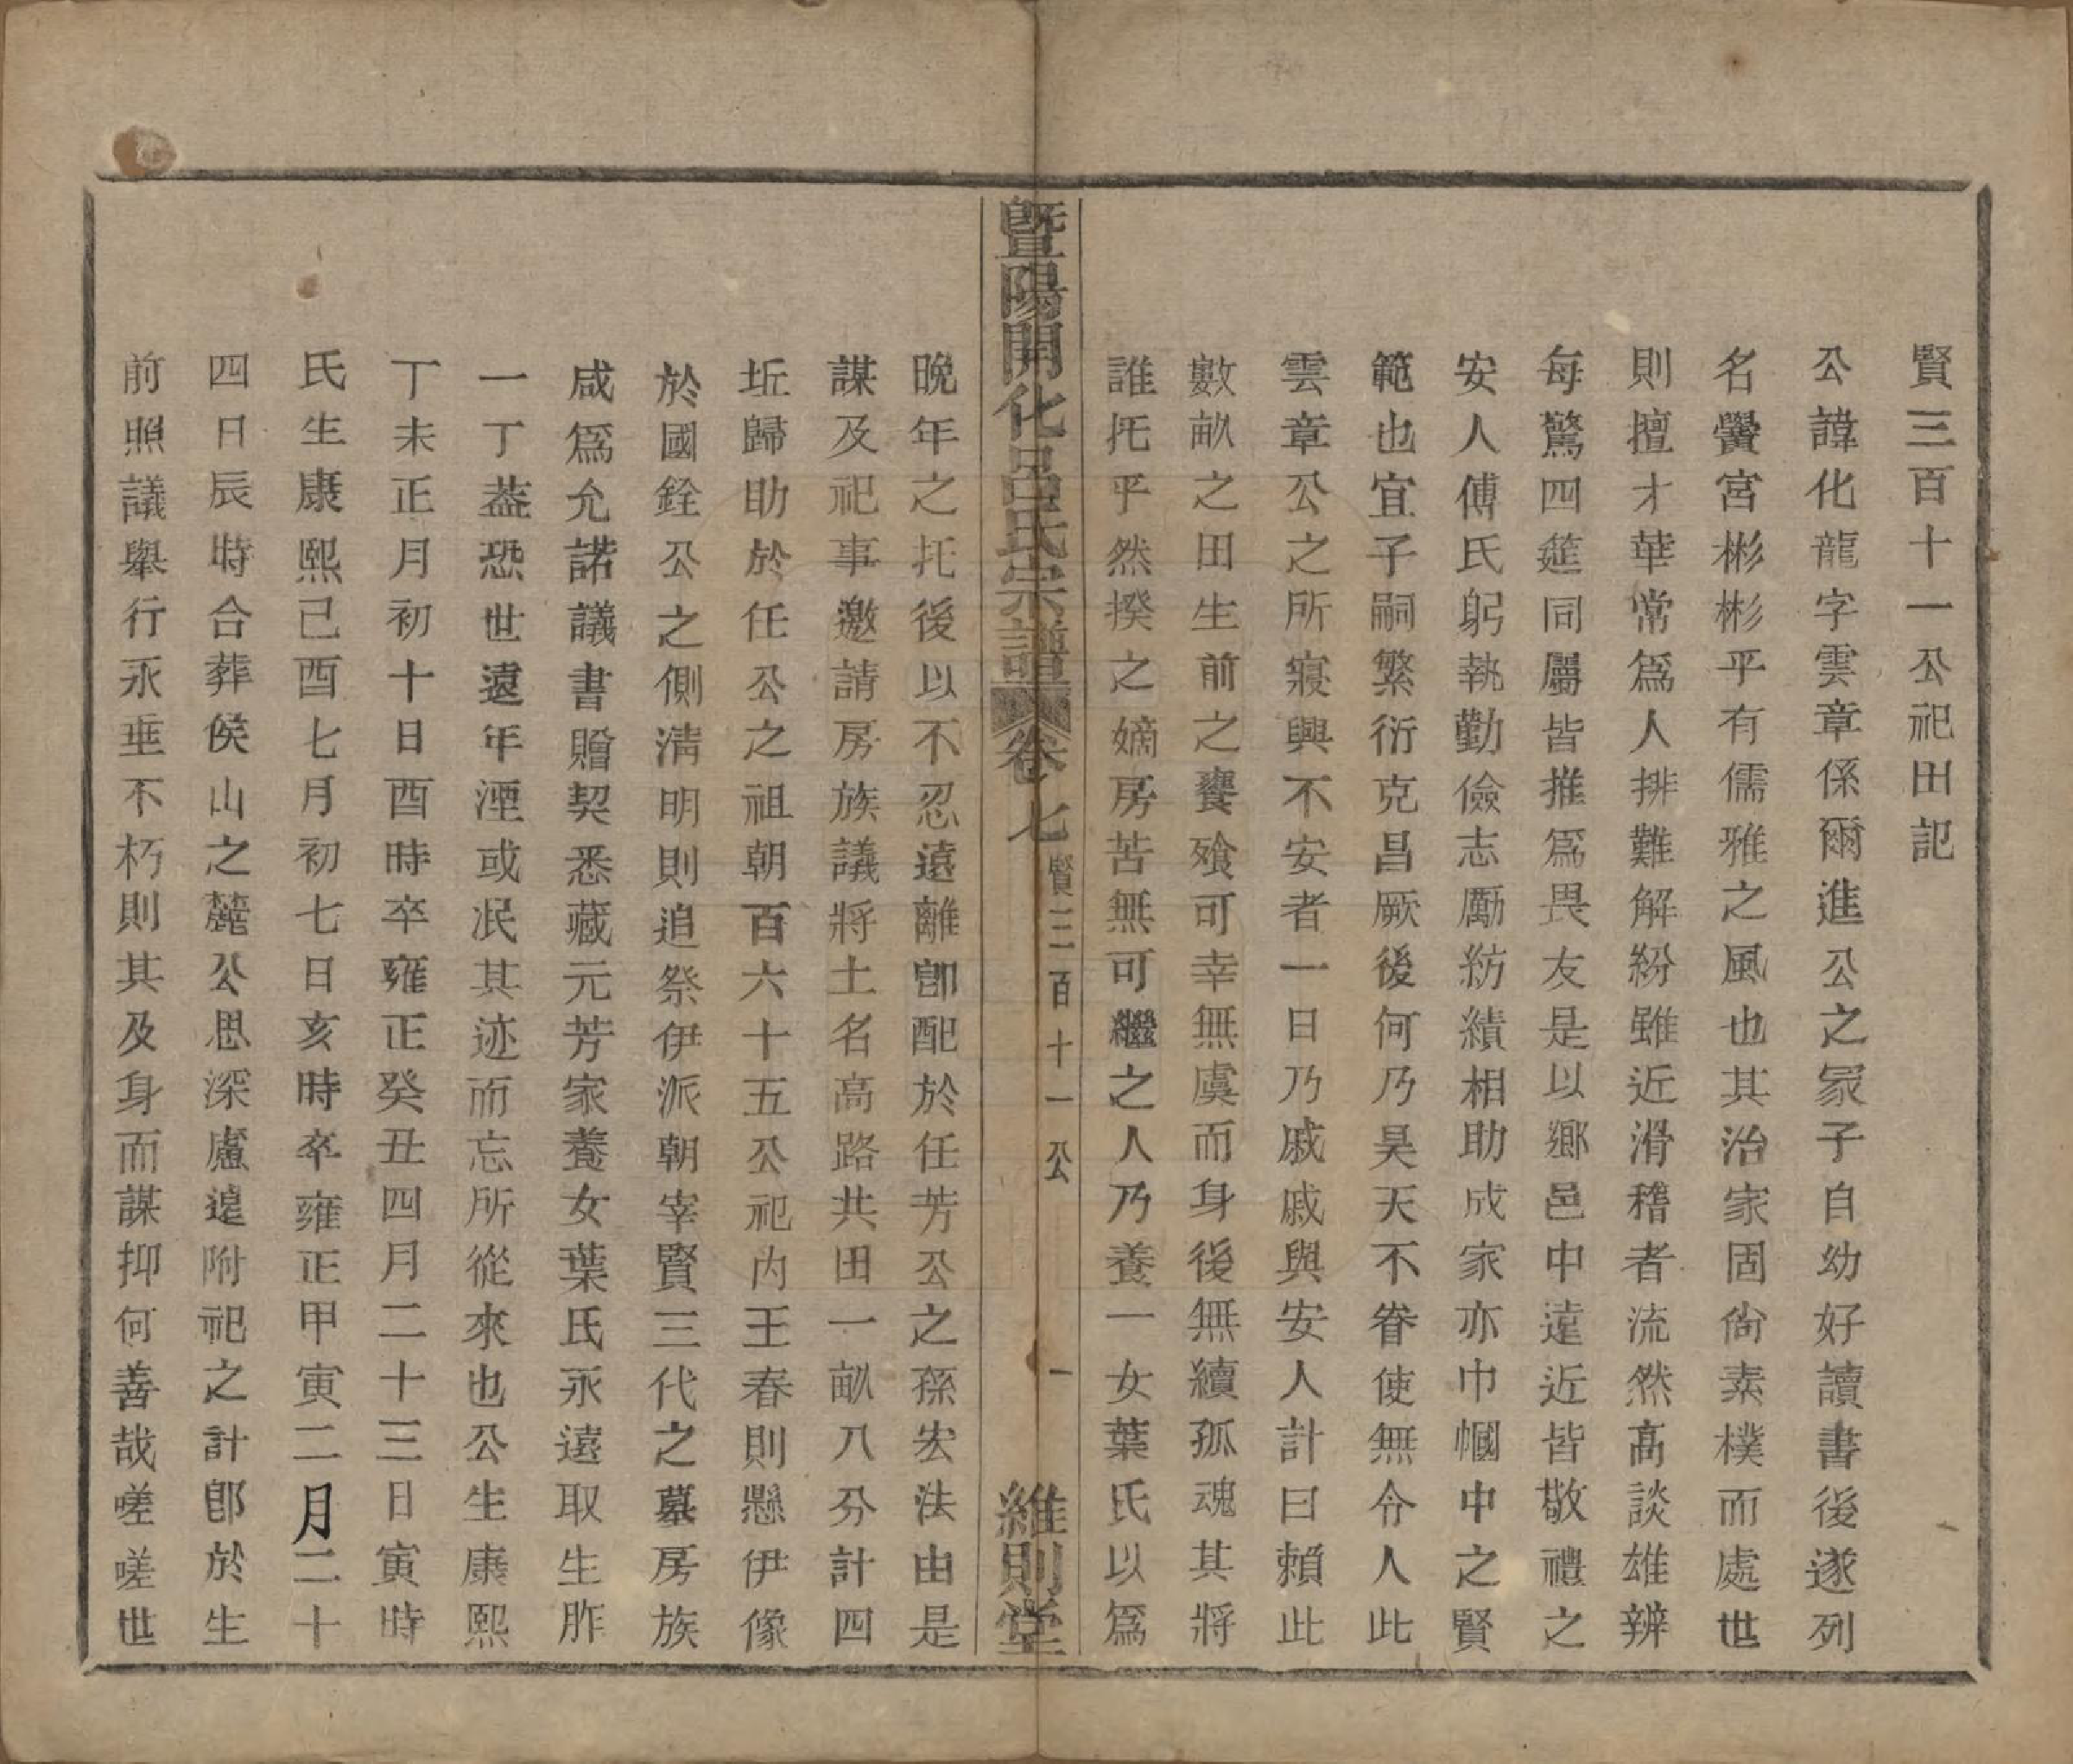 賢三百十一公祀田記
公諱化龍字雲章係爾進公之冡子自幼好讀書後遂列
名黌宮彬彬乎有儒雅之風也其治家固尙素樸而處世
則擅才華常爲人排難解紛雖近滑稽者流然高談雄辨
每驚四筵同屬皆推爲畏友是以鄉邑中遠近皆敬禮之
安人傅氏躬執勤儉志勵紡績相助成家亦巾幗中之賢
範也宜子嗣繁衍克昌厥後何乃昊天不眷使無令人此
雲章公之所寢興不安者一日乃戚戚與安人計曰賴此
數畝之田生前之饔飱可幸無虞而身後無續孤魂其將
誰托乎然揆之嫡房苦無可繼之人乃養一女葉氏以爲
暨陽開化呂氏宗譜
卷七 賢三百十一公 一 維則堂
晚年之托後以不忍遠離卽配於任芳公之孫宏法由是
謀及祀事邀請房族議將土名高路共田一畝八分計四
坵歸助於任公之祖朝百六十五公祀内王春則懸伊像
於國銓公之側淸明則追祭伊派朝宰賢三代之墓房族
咸爲允諾議書贈契悉藏元芳家養女葉氏永遠取生胙
一丁葢恐世遠年湮或泯其迹而忘所從來也公生康熙
丁未正月初十日酉時卒雍正癸丑四月二十三日寅時
氏生康熙己酉七月初七日亥時卒雍正甲寅二月二十
四日辰時合葬侯山之麓公思深慮遠附祀之計卽於生
前照議舉行永垂不朽則其及身而謀抑何善哉嗟嗟世